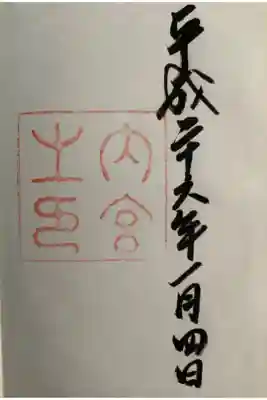 平成二十六年一月四日
内宮
之印